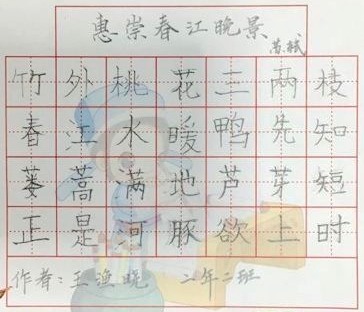 惠崇春江晚景
苏轼
竹外桃花三两枝
春江水暖鸭先知
蒌蒿满地芦芽短
正是河豚欲上时
作者:王渔晚 二年二班